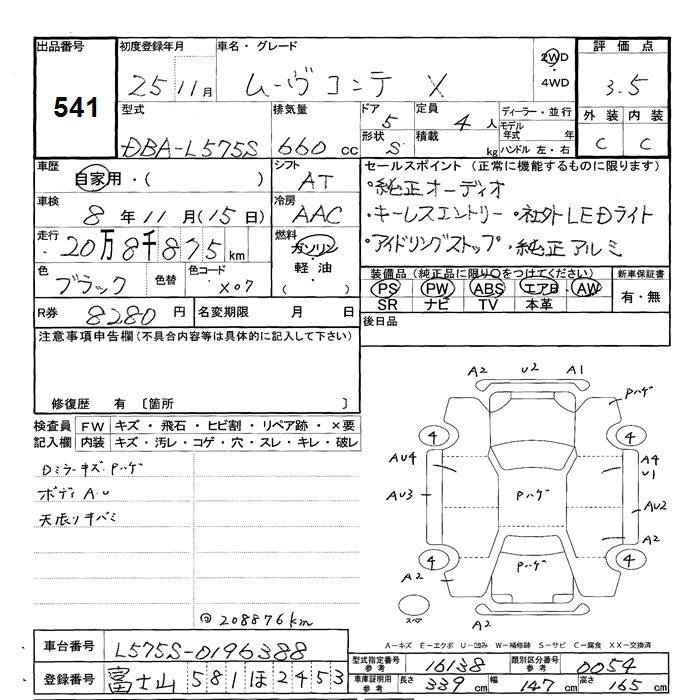 出品番号 初度登録年月 車名・グレード 2WD 4WD 評価点
541 25 11月 ムーヴコンテ X 3.5
外装 内装
C C
型式 排気量 ドア 定員 ディーラー・並行
DBA-L575S 660 cc 5 4人 モデル年式 年
形状 積載 ハンドル 左・右
S kg
車歴 シフト セールスポイント (正常に機能するものに限ります)
自家用・( ) AT ・純正オーディオ
車検 冷房 ・キーレスエントリー ・社外LEDライト
8年11月(15日) AAC ・アイドリングストップ ・純正アルミ
走行 燃料
20万8千875km ガソリン・軽油・( )
色 色替 色コード 装備品(純正品に限り○をつけてください) 新車保証書
ブラック X07 PS PW ABS エアB AW 有・無
SR ナビ TV 本革
R券 8280円 名変期限 月 日 後日品
注意事項申告欄(不具合内容等は具体的に記入して下さい)
修復歴 有 〔箇所 〕
検査員記入欄 FW キズ・飛石・ヒビ割・リペア跡・×要
内装 キズ・汚レ・コゲ・穴・スレ・キレ・破レ
Dミラーキズ Pハゲ
ボディ A.U
天張りキバミ
208876km
A2 U2 A1
Pハゲ
4 4
AU4 A4
U1
AU3 Pハゲ AU2
A2
4 Pハゲ 4
A2
スペア
A2
A-キズ E-エクボ U-凹み W-補修跡 S-サビ C-腐食 XX-交換済
車台番号 L575S-0196388
型式指定番号参考 16138 類別区分番号参考 0054
登録番号 富士山 581 ほ 2453
車庫証明用参考 長さ 339cm 幅 147cm 高さ 165cm